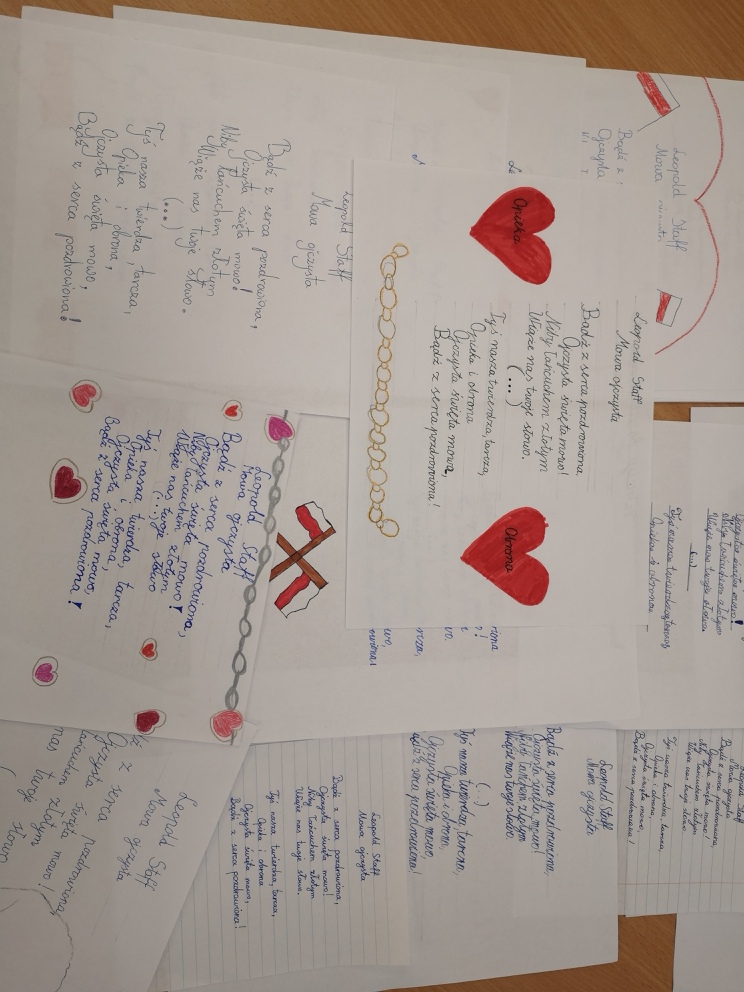 Leopold Staff
Mowa ojczysta
Bądź z serca pozdrowiona,
Ojczysta święta mowo!
Niby łańcuchem złotym
Wiąże nas twoje słowo.
(...)
Tyś nasza twierdza, tarcza,
Opieka i obrona,
Ojczysta święta mowo,
Bądź z serca pozdrowiona!
Leopold Staff
Mowa
Bądź z
Ojczysta
Opieka
Leopold Staff
Mowa ojczysta
Bądź z serca pozdrowiona
Ojczysta święta mowo!
Niby łańcuchem złotym
Wiąże nas twoje słowo.
(...)
Tyś nasza twierdza, tarcza,
Opieka i obrona
Ojczysta święta mowo,
Bądź z serca pozdrowiona!
Obrona
Leopold Staff
Mowa ojczysta
Bądź z serca pozdrowiona,
Ojczysta święta mowo!
Niby łańcuchem złotym
Wiąże nas twoje słowo
(...)
Tyś nasza twierdza, tarcza,
Opieka i obrona,
Ojczysta święta mowo,
Bądź z serca pozdrowiona!
Ojczysta święta mowo!
Niby łańcuchem złotym
Wiąże nas twoje słowo
(...)
Tyś nasza twierdza, tarcza
Opieka i obrona
Leopold Staff
Mowa ojczysta
z serca pozdrowiona
Ojczysta święta mowo!
łańcuchem złotym
nas twoje słowo
Leopold Staff
Mowa ojczysta
Bądź z serca pozdrowiona,
Ojczysta święta mowo!
Niby łańcuchem złotym
Wiąże nas twoje słowo.
Tyś nasza twierdza, tarcza,
Opieka i obrona
Ojczysta święta mowo,
Bądź z serca pozdrowiona!
Leopold Staff
Mowa ojczysta
Bądź z serca pozdrowiona,
Ojczysta święta mowo!
Niby łańcuchem złotym
Wiąże nas twoje słowo.
(...)
Tyś nasza twierdza, tarcza,
Opieka i obrona,
Ojczysta święta mowo,
Bądź z serca pozdrowiona!
Mowa ojczysta
Bądź z serca pozdrowiona,
Ojczysta święta mowo!
Niby łańcuchem złotym
Wiąże nas twoje słowo.
Tyś nasza twierdza, tarcza
Opieka i obrona,
Ojczysta święta mowo,
Bądź z serca pozdrowiona!